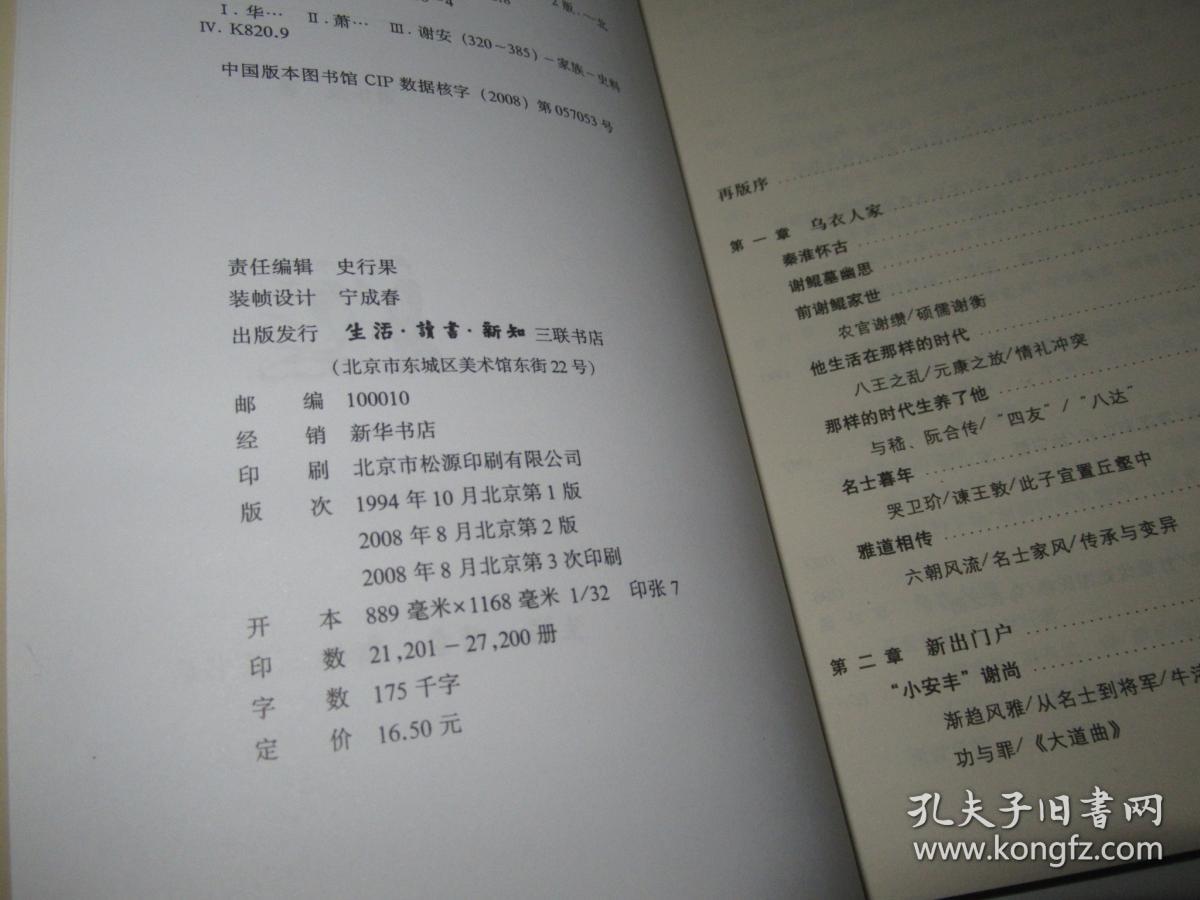 2版.—北
Ⅰ.华… Ⅱ.萧… Ⅲ.谢安(320～385)－家族－史料
Ⅳ.K820.9
中国版本图书馆 CIP 数据核字(2008)第 057053 号
责任编辑 史行果
装帧设计 宁成春
出版发行 生活·讀書·新知 三联书店
(北京市东城区美术馆东街22号)
邮编 100010
经销 新华书店
印刷 北京市松源印刷有限公司
版次 1994年10月北京第1版
2008年8月北京第2版
2008年8月北京第3次印刷
开本 889毫米×1168毫米 1/32 印张7
印数 21,201－27,200册
字数 175千字
定价 16.50元
再版序
第一章 乌衣人家
秦淮怀古
谢鲲墓幽思
前谢鲲家世
农官谢缵/硕儒谢衡
他生活在那样的时代
八王之乱/元康之放/情礼冲突
那样的时代生养了他
与嵇、阮合传/“四友”/“八达”
名士暮年
哭卫玠/谏王敦/此子宜置丘壑中
雅道相传
六朝风流/名士家风/传承与变异
第二章 新出门户
“小安丰”谢尚
渐趋风雅/从名士到将军/牛渚
功与罪/《大道曲》
孔夫子旧书网
www.kongfz.com